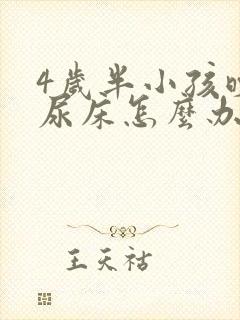 4歲半小孩
尿床怎麼办
王天祜